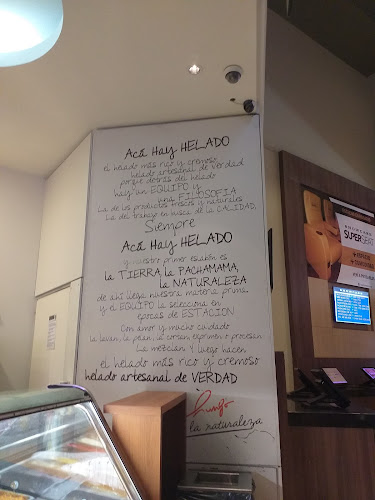 Acá Hay HELADO
el helado más rico y cremoso
helado artesanal de verdad
porque detrás del helado
hay un EQUIPO y
una FILOSOFIA
La de los productos frescos y naturales
La del trabajo en busca de la CALIDAD.
Siempre
Acá Hay HELADO
y nuestro primer eslabón es
la TIERRA, la PACHAMAMA,
la NATURALEZA
de ahí llega nuestra materia prima.
y el EQUIPO la selecciona en
épocas de ESTACION
Con amor y mucho cuidado
la lavan, la pelan, la cortan, exprimen o procesan
La mezclan y luego hacen
el helado más rico y cremoso
helado artesanal de VERDAD
la naturaleza
SUPERSERT